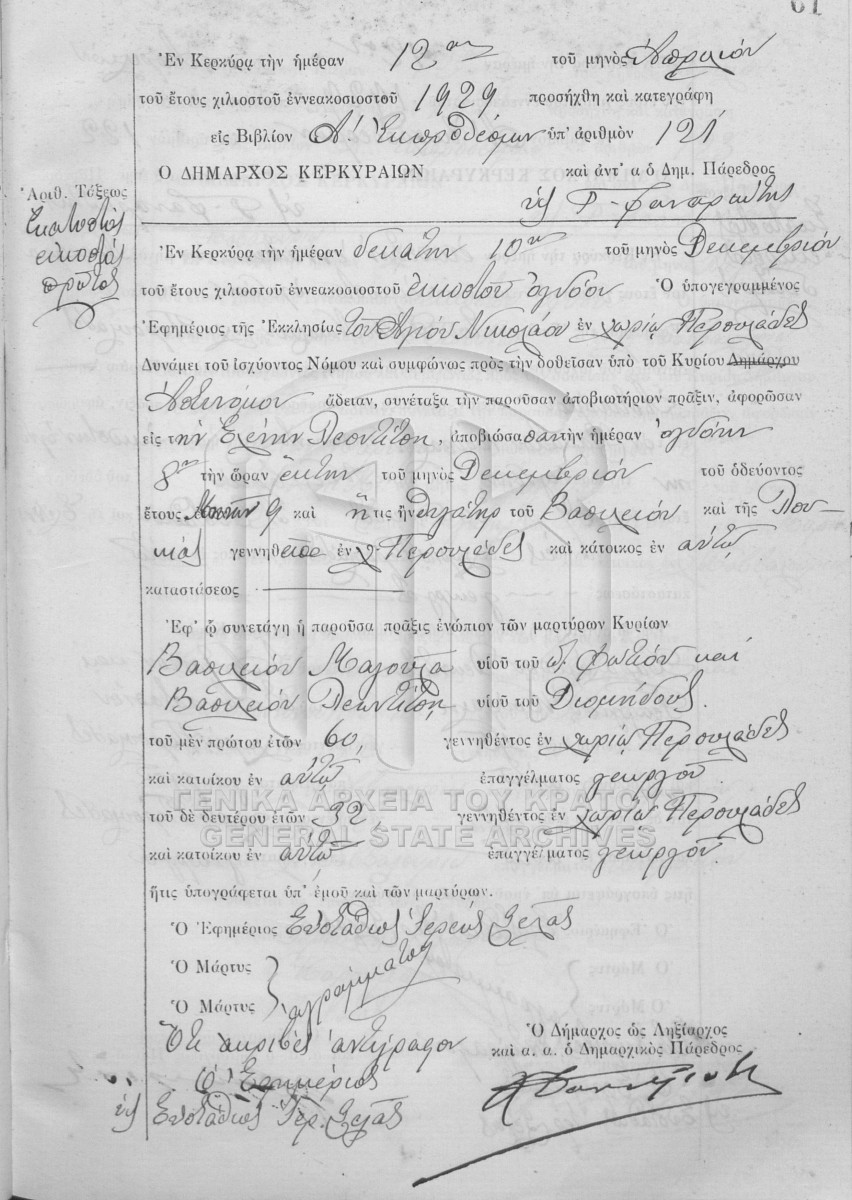 61
Ἐν Κερκύρᾳ τὴν ἡμέραν 12ην τοῦ μηνὸς Ἀπριλίου
τοῦ ἔτους χιλιοστοῦ ἐννεακοσιοστοῦ 1929 προσήχθη καὶ κατεγράφη
εἰς Βιβλίον Α΄ Ἐκπροθέσμων ὑπ' ἀριθμὸν 121
Ο ΔΗΜΑΡΧΟΣ ΚΕΡΚΥΡΑΙΩΝ καὶ ἀντ' α ὁ Δημ. Πάρεδρος
Ἀριθ. Τάξεως
Ἑκατοστὸς
εἰκοστὸς
πρῶτος
Ἐν Κερκύρᾳ τὴν ἡμέραν δεκάτην 10ην τοῦ μηνὸς Δεκεμβρίου
τοῦ ἔτους χιλιοστοῦ ἐννεακοσιοστοῦ εἰκοστοῦ ὀγδόου Ὁ ὑπογεγραμμένος
Ἐφημέριος τῆς Ἐκκλησίας τοῦ Ἁγίου Νικολάου ἐν χωρίῳ Περουλάδες
Δυνάμει τοῦ ἰσχύοντος Νόμου καὶ συμφώνως πρὸς τὴν δοθεῖσαν ὑπὸ τοῦ Κυρίου Δημάρχου
Ἀστυνόμου ἄδειαν, συνέταξα τὴν παροῦσαν ἀποβιωτήριον πρᾶξιν, ἀφορῶσαν
εἰς τὴν Ἑλένην Λεοντίτση, ἀποβιώσασαν τὴν ἡμέραν ὀγδόην
8ην τὴν ὥραν ἕκτην τοῦ μηνὸς Δεκεμβρίου τοῦ ὁδεύοντος
ἔτους 9 καὶ ἥτις ἦν θυγάτηρ τοῦ Βασιλείου καὶ τῆς Λου-
κίας γεννηθεῖσα ἐν χ. Περουλάδες καὶ κάτοικος ἐν αὐτῷ
καταστάσεως
Ἐφ' ᾧ συνετάγη ἡ παροῦσα πρᾶξις ἐνώπιον τῶν μαρτύρων Κυρίων
Βασιλείου Μαγουλᾶ υἱοῦ τοῦ π. Φωτίου καὶ
Βασιλείου Λεοντίτση υἱοῦ τοῦ Διομήδους.
τοῦ μὲν πρώτου ἐτῶν 60, γεννηθέντος ἐν χωρίῳ Περουλάδες
καὶ κατοίκου ἐν αὐτῷ ἐπαγγέλματος γεωργοῦ.
τοῦ δὲ δευτέρου ἐτῶν 32, γεννηθέντος ἐν χωρίῳ Περουλάδες
καὶ κατοίκου ἐν αὐτῷ ἐπαγγέλματος γεωργοῦ.
ΓΕΝΙΚΑ ΑΡΧΕΙΑ ΤΟΥ ΚΡΑΤΟΥΣ
GENERAL STATE ARCHIVES
ἥτις ὑπογράφεται ὑπ' ἐμοῦ καὶ τῶν μαρτύρων.
Ὁ Ἐφημέριος Εὐστάθιος Ἱερεὺς
Ὁ Μάρτυς
Ὁ Μάρτυς ἀγράμματοι
Ὅτι ἀκριβὲς ἀντίγραφον
Ὁ Ἐφημέριος
Εὐστάθιος Ἱερ.
Ὁ Δήμαρχος ὡς Ληξίαρχος
καὶ α. α. ὁ Δημαρχικὸς Πάρεδρος